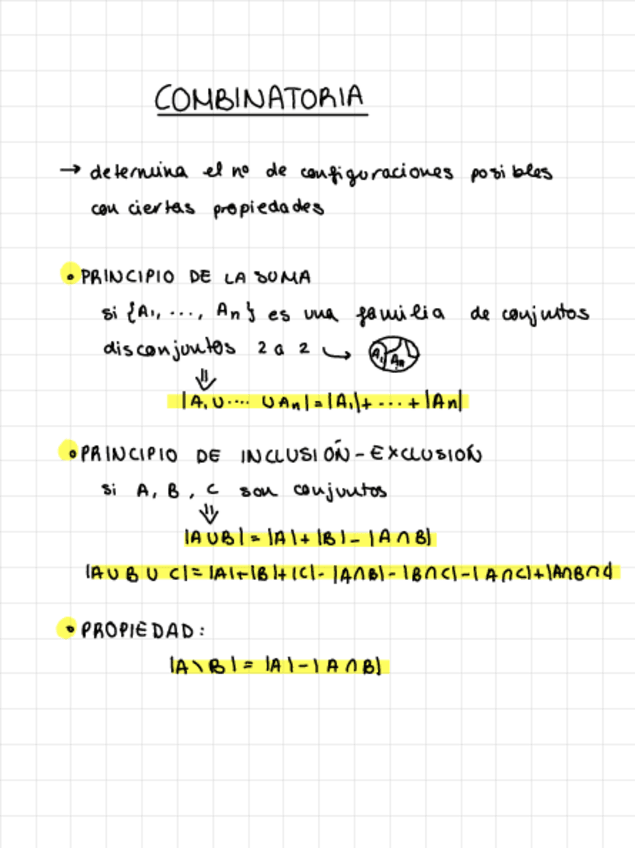 COMBINATORIA
→ determina el nº de configuraciones posibles
con ciertas propiedades
• PRINCIPIO DE LA SUMA
si {A₁, ..., An} es una familia de conjuntos
disconjuntos 2 a 2 → A₁ An
⇓
|A₁ ∪ ···· ∪ An| = |A₁| + ... + |An|
• PRINCIPIO DE INCLUSIÓN - EXCLUSIÓN
si A, B, C son conjuntos
⇓
|A ∪ B| = |A| + |B| - |A ∩ B|
|A ∪ B ∪ C| = |A| + |B| + |C| - |A∩B| - |B∩C| - |A∩C| + |A∩B∩C|
• PROPIEDAD:
|A \ B| = |A| - |A ∩ B|